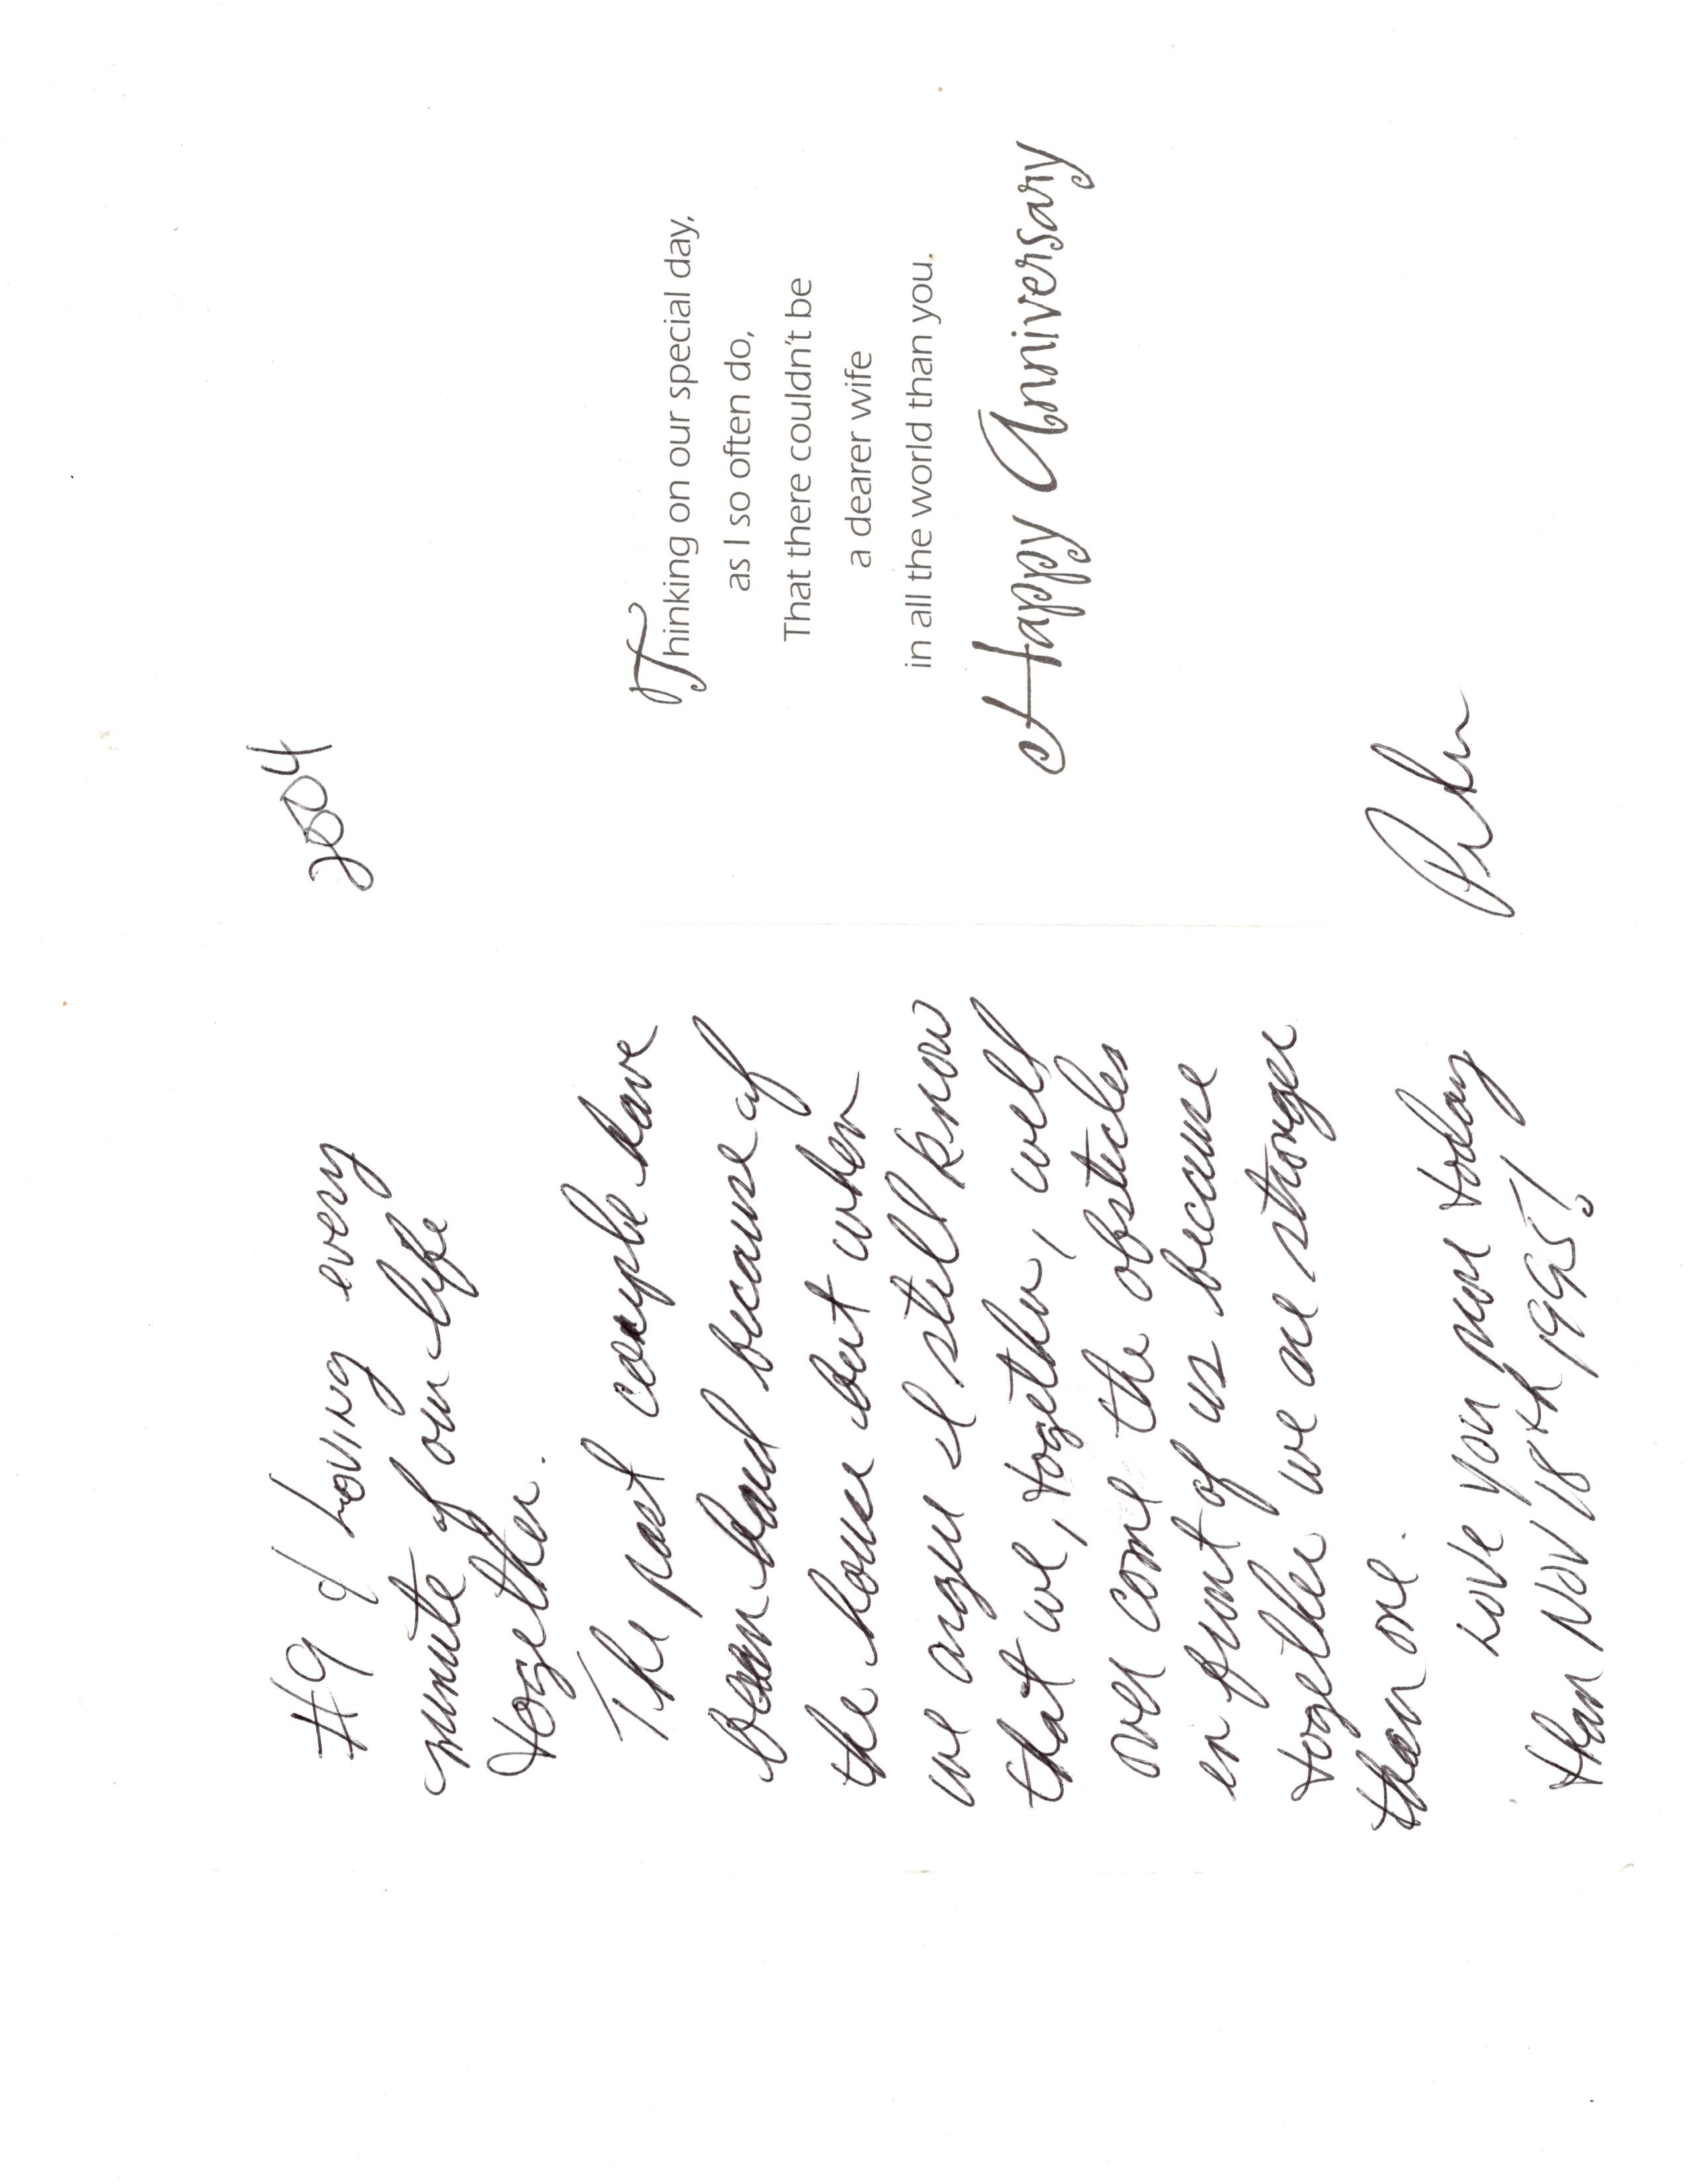 #9 of Loving every
minute of our life
together.
The past couple have
been hard because of
the house but when
we argue I still know
that we, together, will
over come the obsticles
in front of us because
together we are stronger
than one.
Love you more today
than Nov 18th, 1995!
2004
Thinking on our special day,
as I so often do,
That there couldn't be
a dearer wife
in all the world than you.
Happy Anniversary